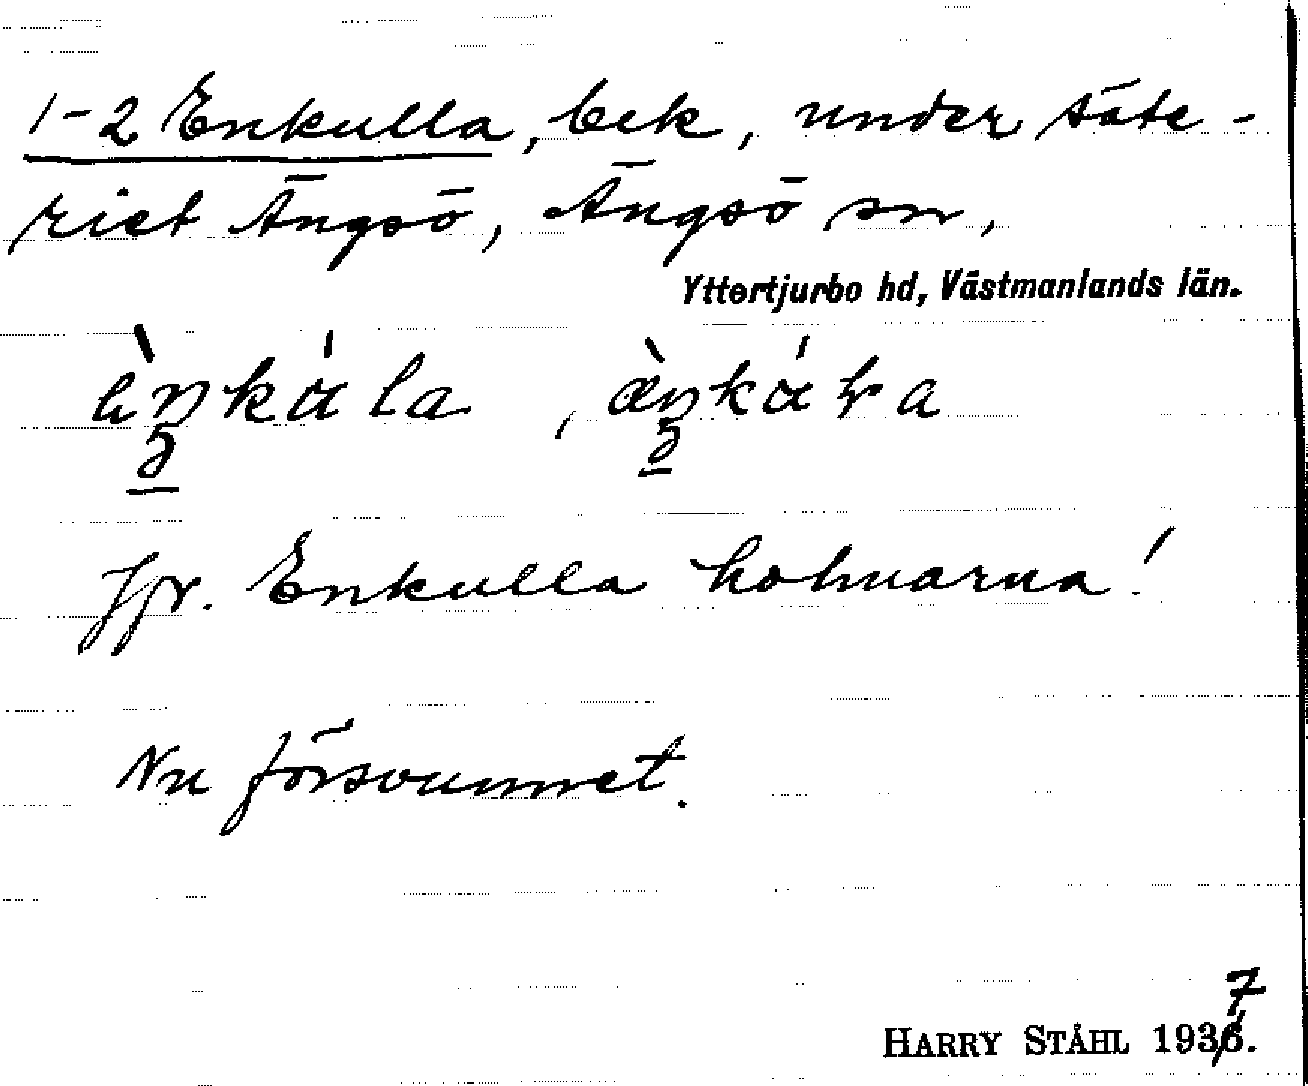 1-2 Enkulla, bek, under säte-
riet Ängsö, Ängsö sn,
Yttertjurbo hd, Västmanlands län.
Jfr. Enkulla holmarna!
Nu försvunnet.
7
HARRY STÅHL 1936.